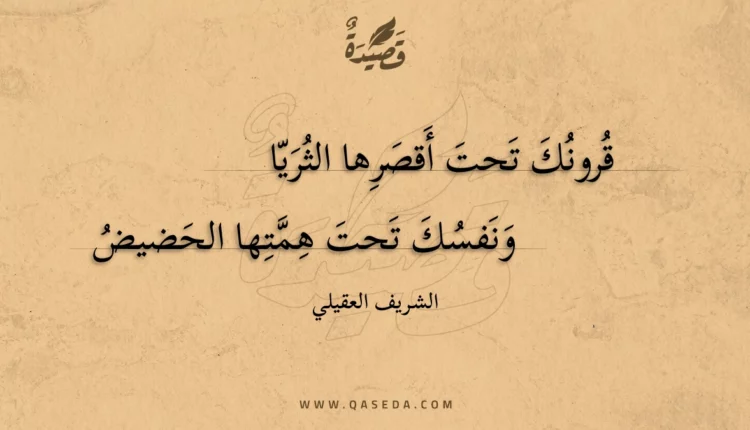 قَصِيدَةٌ
قُرونُكَ تَحتَ أَقصَرِها الثُرَيّا
وَنَفسُكَ تَحتَ هِمَّتِها الحَضيضُ
الشريف العقيلي
WWW.QASEDA.COM